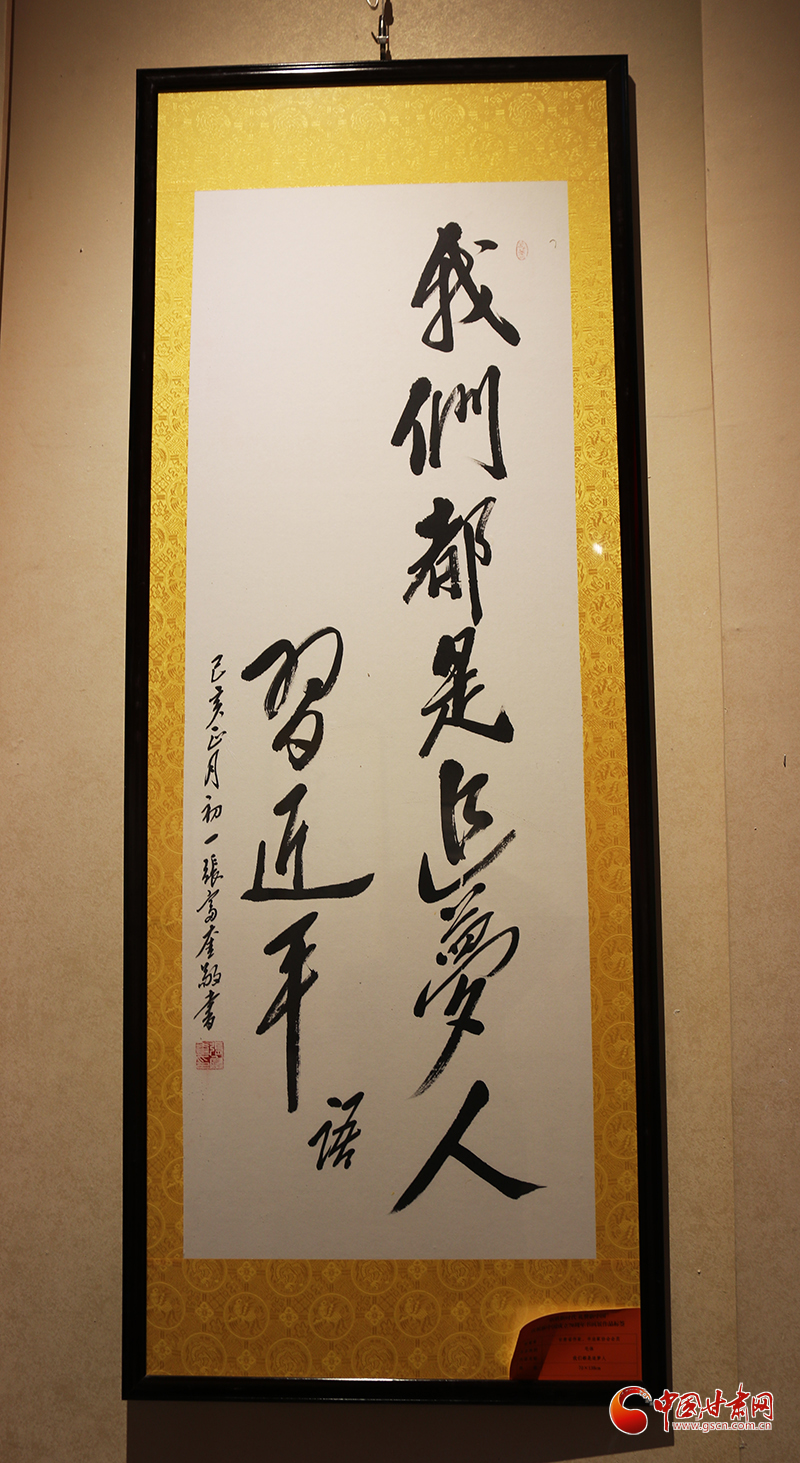 我們都是追夢人
習近平
語
己亥正月初一張富奎敬書
中国甘肃网
www.gscn.com.cn